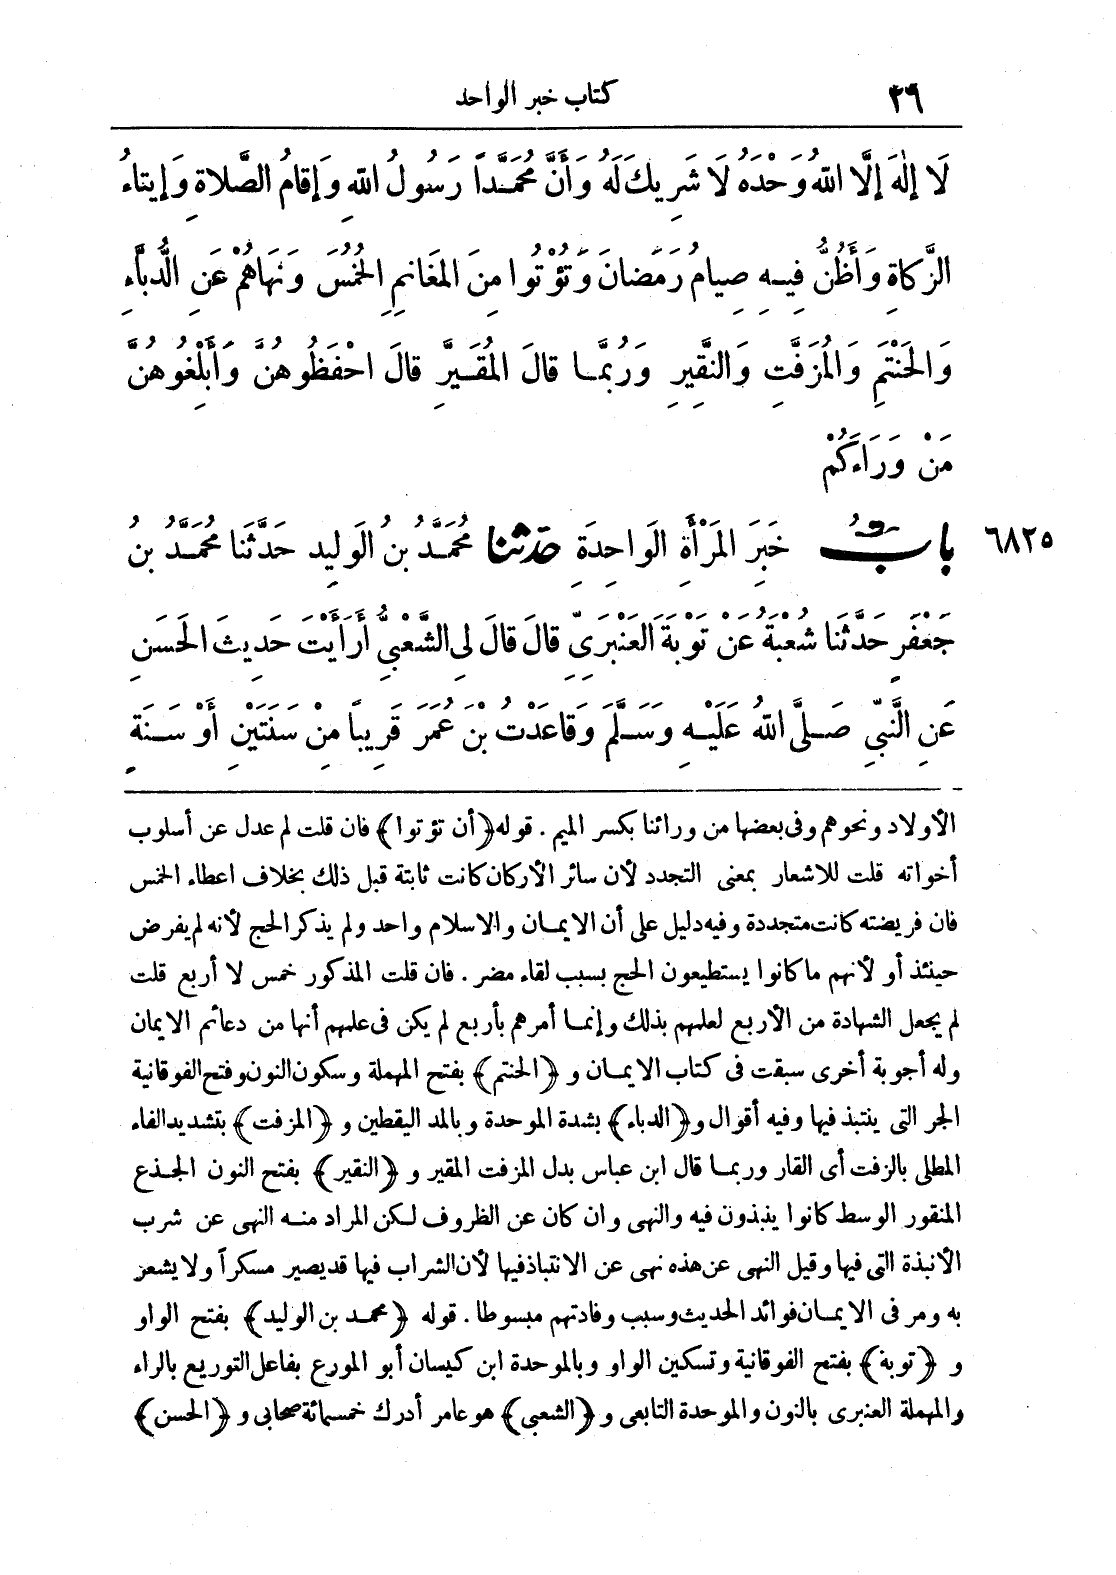 ٢٦ كتاب خبر الواحد
لَا إِلٰهَ إِلَّا اللهُ وَحْدَهُ لَا شَرِيكَ لَهُ وَأَنَّ مُحَمَّداً رَسُولُ اللهِ وَإِقَامُ الصَّلَاةِ وَإِيتَاءُ
الزَّكَاةِ وَأَظُنُّ فِيهِ صِيَامُ رَمَضَانَ وَتُؤْتُوا مِنَ المَغَانِمِ الخُمُسَ وَنَهَاهُمْ عَنِ الدُّبَّاءِ
وَالحَنْتَمِ وَالمُزَفَّتِ وَالنَّقِيرِ وَرُبَّمَا قَالَ المُقَيَّرِ قَالَ احْفَظُوهُنَّ وَأَبْلِغُوهُنَّ
مَنْ وَرَاءَكُمْ
٦٨٢٥ بابٌ خَبَرِ المَرْأَةِ الوَاحِدَةِ حدثنا مُحَمَّدُ بنُ الوَلِيدِ حَدَّثَنَا مُحَمَّدُ بنُ
جَعْفَرٍ حَدَّثَنَا شُعْبَةُ عَنْ تَوْبَةَ العَنْبَرِيِّ قَالَ قَالَ لِي الشَّعْبِيُّ أَرَأَيْتَ حَدِيثَ الحَسَنِ
عَنِ النَّبِيِّ صَلَّى اللهُ عَلَيْهِ وَسَلَّمَ وَقَاعَدْتُ بْنَ عُمَرَ قَرِيباً مِنْ سَنَتَيْنِ أَوْ سَنَةٍ
الأولاد ونحوهم وفى بعضها من ورائنا بكسر الميم . قوله ﴿أن تؤتوا﴾ فان قلت لم عدل عن أسلوب
أخواته قلت للاشعار بمعنى التجدد لأن سائر الأركان كانت ثابتة قبل ذلك بخلاف اعطاء الخمس
فان فريضته كانت متجددة وفيه دليل على أن الايمان والاسلام واحد ولم يذكر الحج لأنه لم يفرض
حينئذ أو لأنهم ما كانوا يستطيعون الحج بسبب لقاء مضر . فان قلت المذكور خمس لا أربع قلت
لم يجعل الشهادة من الأربع لعلمهم بذلك وإنما أمرهم بأربع لم يكن فى علمهم أنها من دعائم الايمان
وله أجوبة أخرى سبقت فى كتاب الايمان و ﴿الحنتم﴾ بفتح المهملة وسكون النون وفتح الفوقانية
الجر التى ينتبذ فيها وفيه أقوال و﴿الدباء﴾ بشدة الموحدة وبالمد اليقطين و ﴿المزفت﴾ بتشديد الفاء
المطلى بالزفت أى القار وربما قال ابن عباس بدل المزفت المقير و ﴿النقير﴾ بفتح النون الجذع
المنقور الوسط كانوا ينبذون فيه والنهى وان كان عن الظروف لكن المراد منه النهى عن شرب
الأنبذة التى فيها وقيل النهى عن هذه نهى عن الانتباذ فيها لأن الشراب فيها قد يصير مسكراً ولا يشعر
به ومر فى الايمان فوائد الحديث وسبب وفادتهم مبسوطا . قوله ﴿محمد بن الوليد﴾ بفتح الواو
و ﴿توبة﴾ بفتح الفوقانية وتسكين الواو وبالموحدة ابن كيسان أبو المورع بفاعل التوريع بالراء
والمهملة العنبرى بالنون والموحدة التابعى و ﴿الشعبي﴾ هو عامر أدرك خمسمائة صحابى و ﴿الحسن﴾